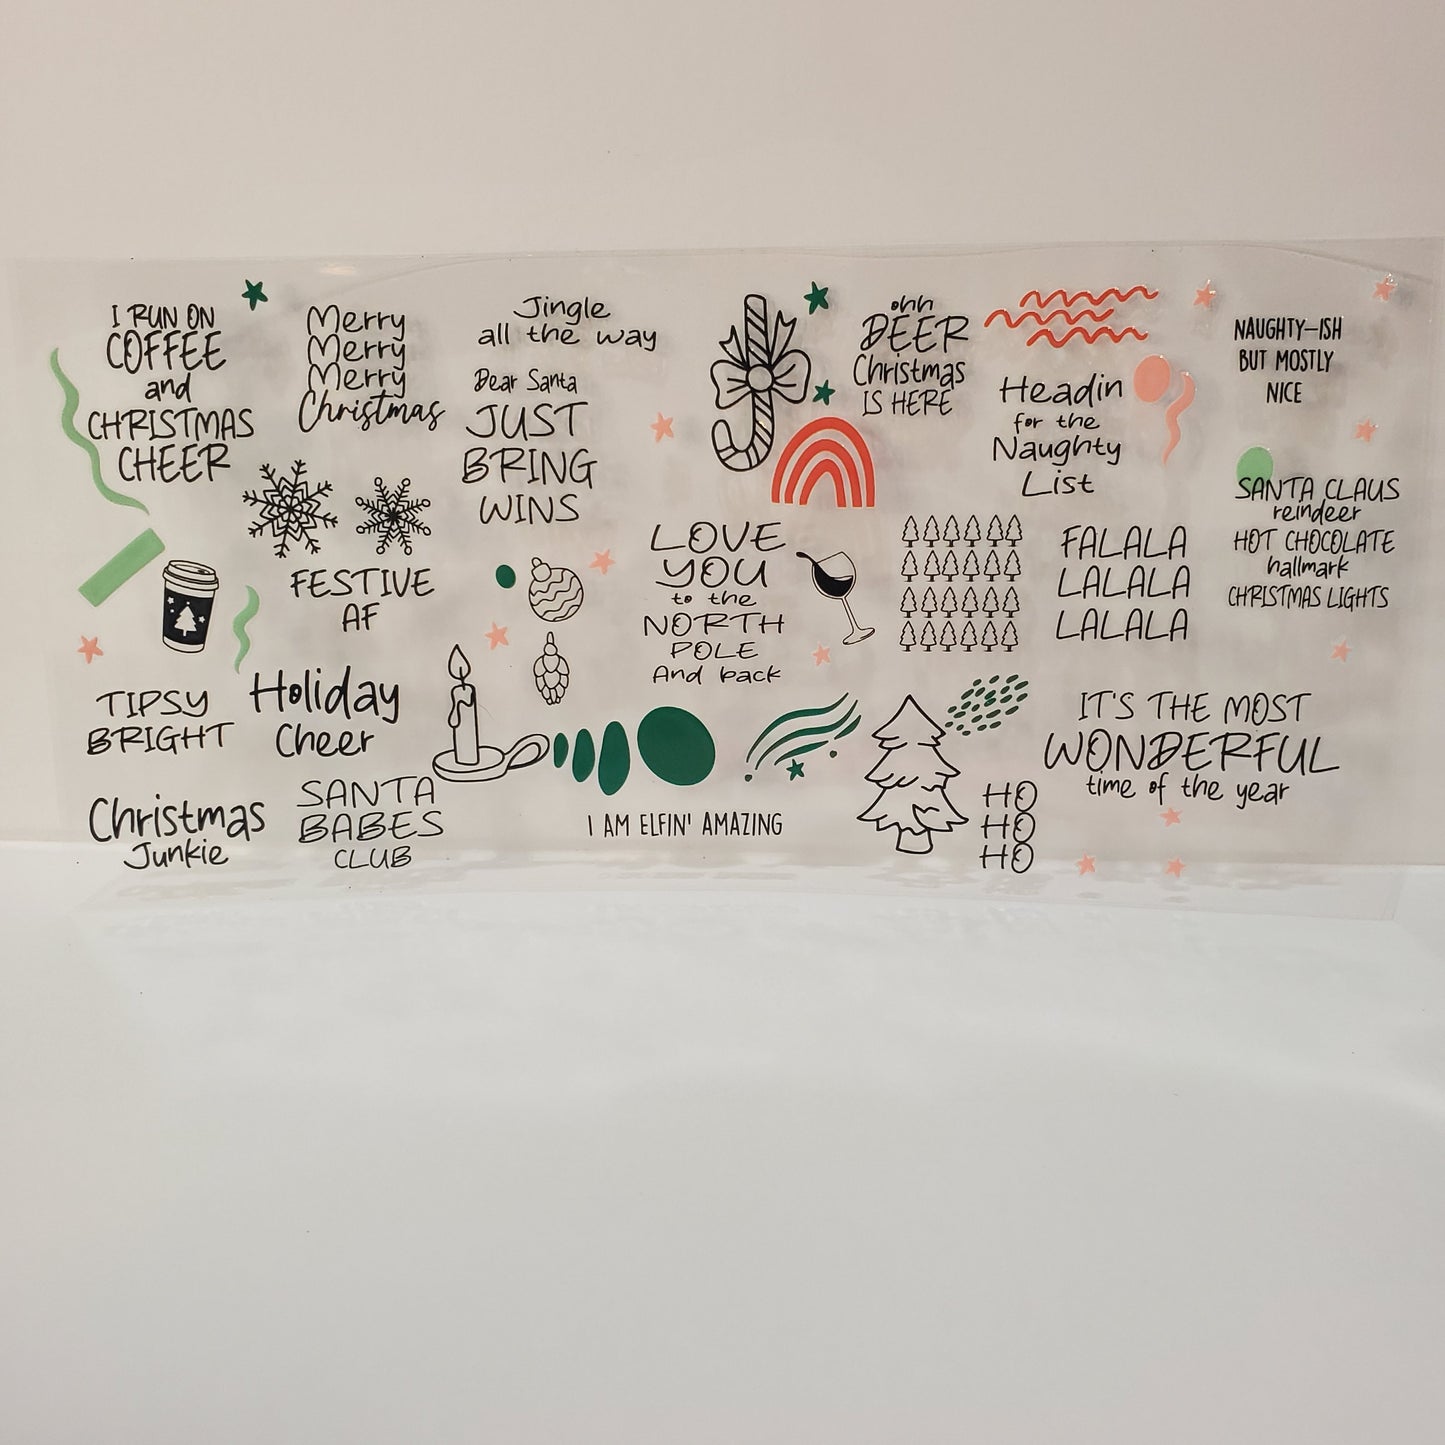 I RUN ON
COFFEE
and
CHRISTMAS
CHEER
Merry
Merry
Merry
Christmas
Jingle
all the way
Dear Santa
JUST
BRING
WINS
ohh
DEER
Christmas
IS HERE
Headin
for the
Naughty
List
NAUGHTY-ISH
BUT MOSTLY
NICE
SANTA CLAUS
reindeer
HOT CHOCOLATE
hallmark
CHRISTMAS LIGHTS
FESTIVE
AF
LOVE
YOU
to the
NORTH
POLE
And back
FALALA
LALALA
LALALA
TIPSY
BRIGHT
Holiday
Cheer
IT'S THE MOST
WONDERFUL
time of the year
Christmas
Junkie
SANTA
BABES
CLUB
I AM ELFIN' AMAZING
HO
HO
HO